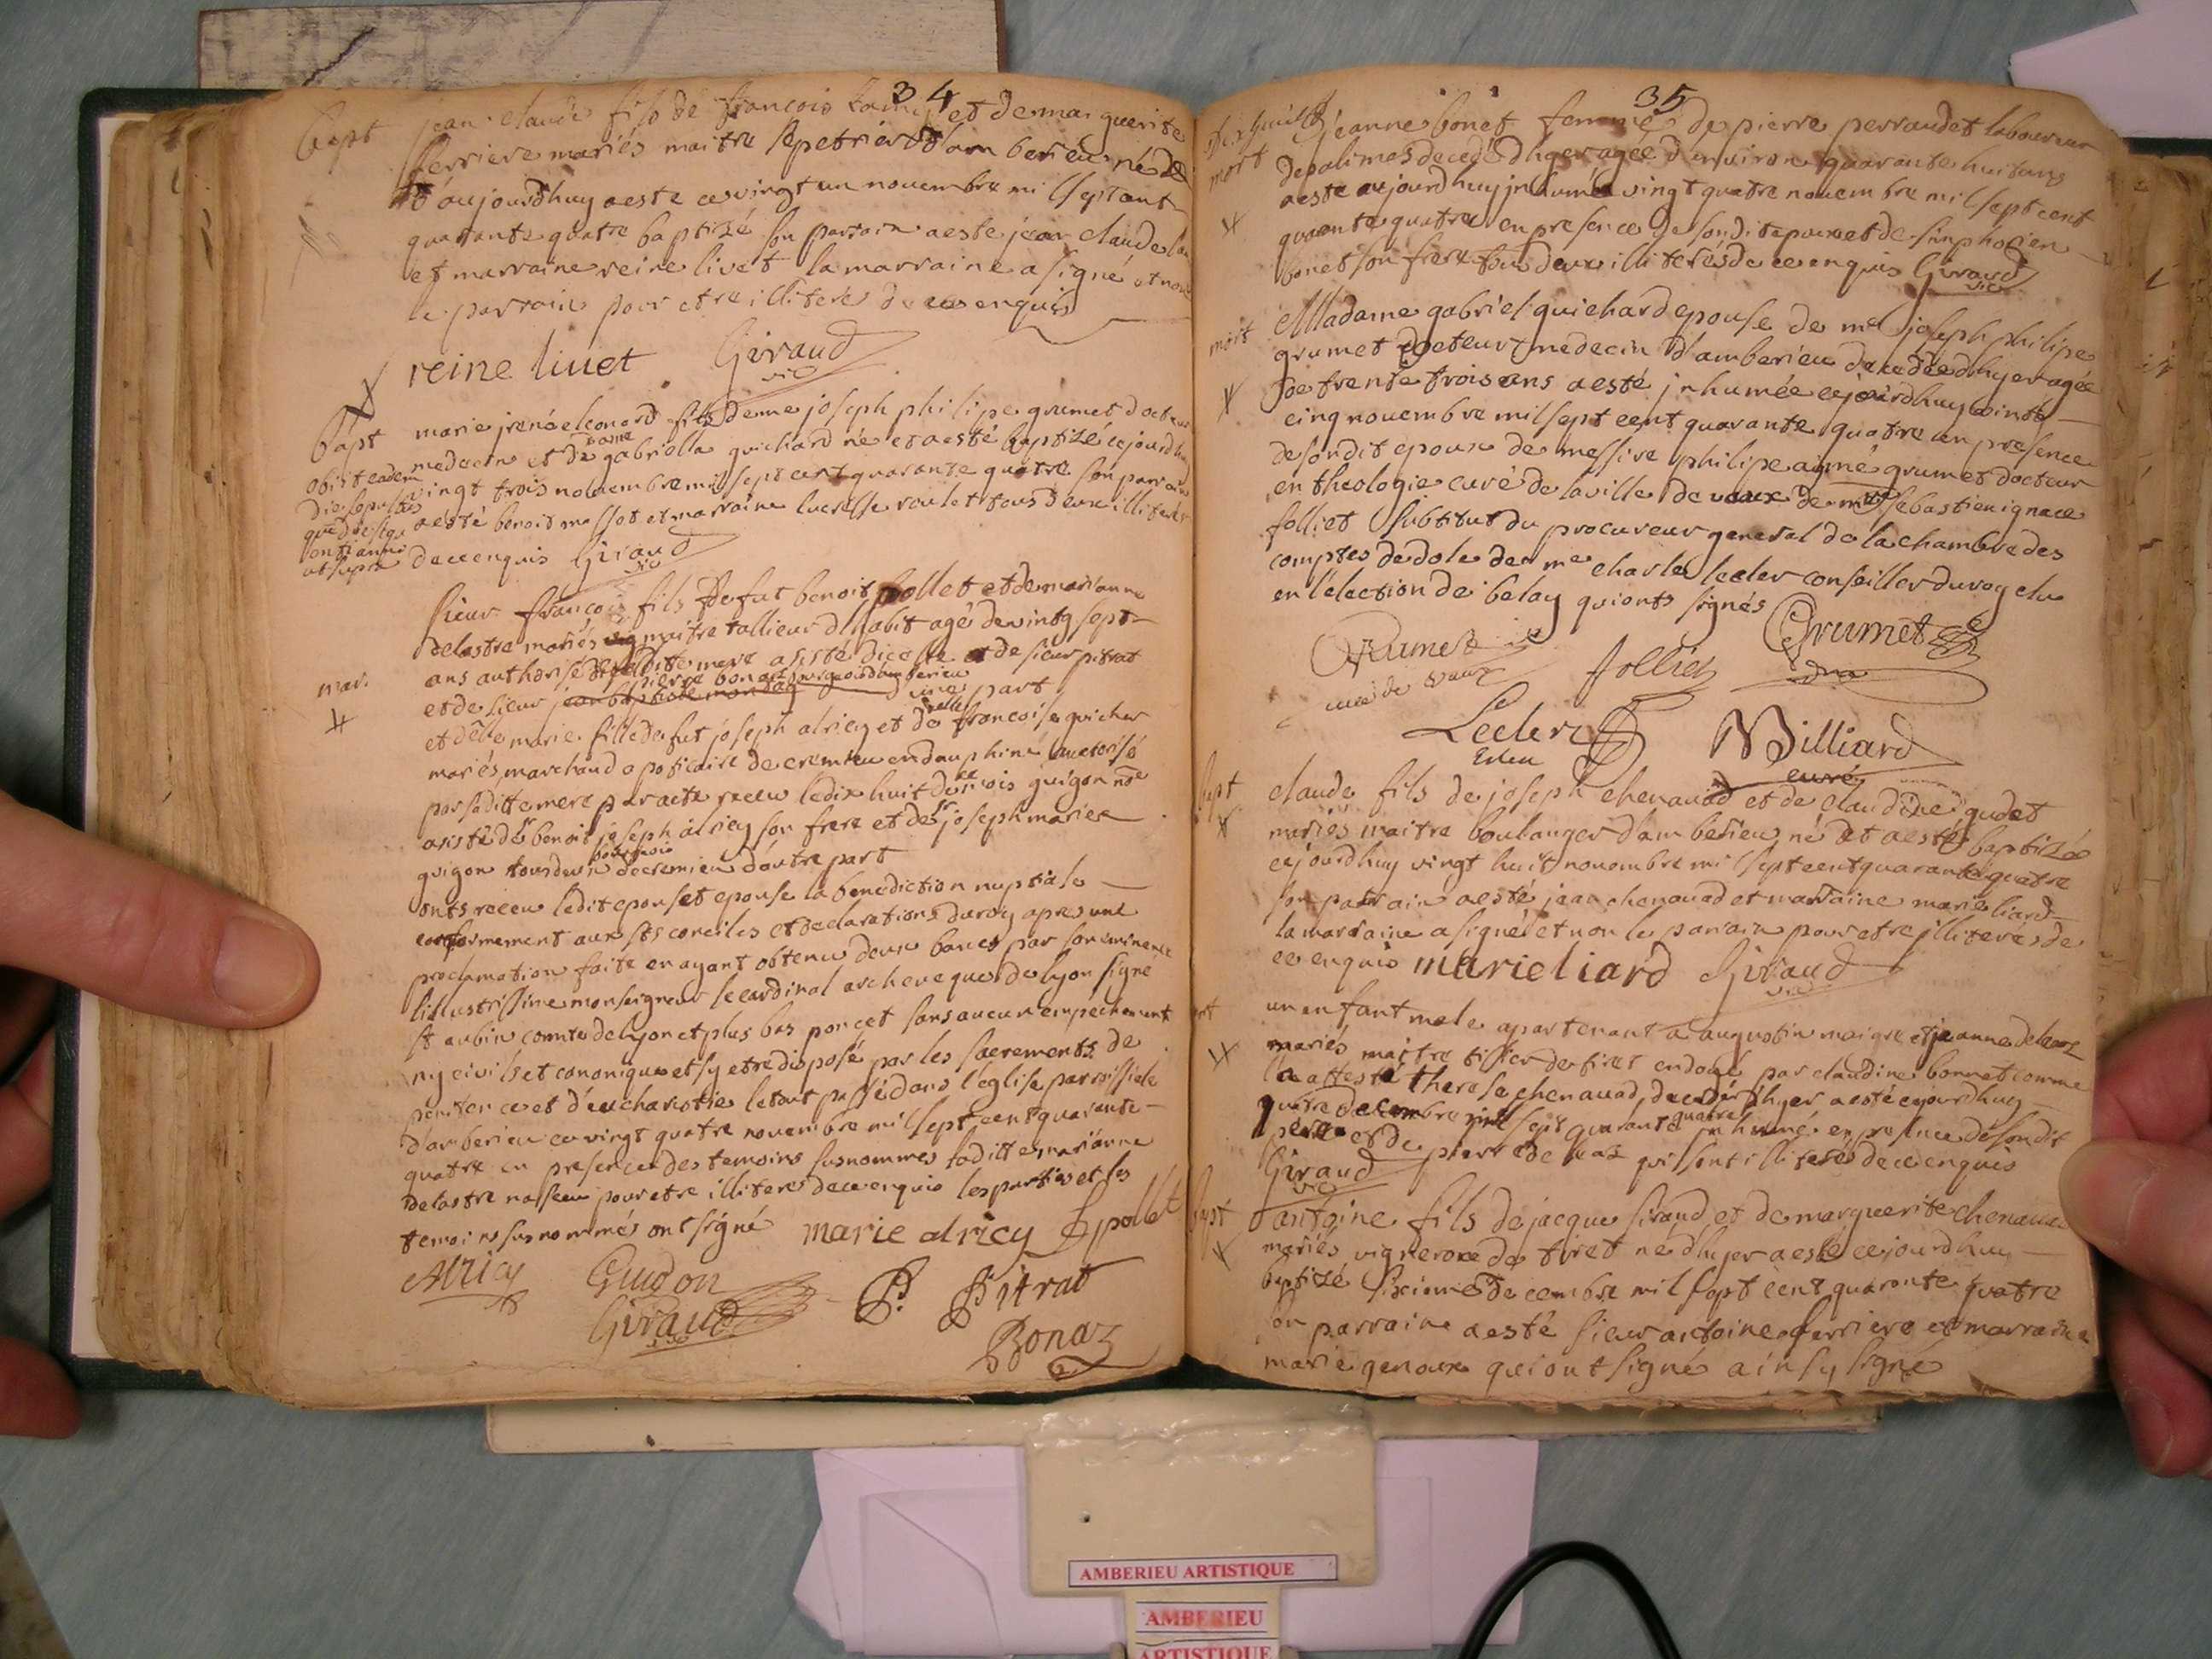 34
bapt
jean claude fils de francois et de marguerite
ferriere mariés maitre d'amberieu né
aujourdhuy aeste ce vingt un novembre mil sept cent
quarante quatre baptizé son parrain aeste jean claude
et marraine reine livet la marraine a signé et non
le parrain pour etre illiteré de ce enquis
reine livet Giraud
vic
bapt
obiit eadem
die sepultus
ut supra
marie irené leonard fils de me joseph philipe grumet docteur
medecin et de dame gabriella guichard né et aesté baptizé cejourdhuy
vingt trois novembre mil sept cent quarante quatre son parrain
aesté benoit massot et marraine lucresse roulet tous deux illiteres
de ce enquis Giraud
vic
mar.
sieur francois fils de fut benoit pollet et de marianne
delastre mariés maitre tallieur d'habit agé de vintg sept
ans authorisé de sadite mere asisté d'icelle et de sieur pitrat
et de sieur pierre bonaz bourgeois d'amberieu d'une part
et delle marie fille de fut joseph alricy et de delle francoise guichar
mariés marchand apoticaire de cremieu en dauphiné autorisé
par saditte mere par acte receu le dix huit de ce mois guigon nore
asisté de sr benoit joseph alricy son frere et de sr joseph marie
guigon tous deux bourgeois de cremieu d'autre part
onts receu ledit epous et epouse la benediction nuptiale
conformement aux sts conciles et declarations du roy apres une
proclamation faite en ayant obtenu deux bancs par son eminence
l'illustrissime monseigneur le cardinal archeveque de lyon signé
st aubin comte de lyon et plus bas poncet sans aucun empechement
ny civils et canoniques et sy etre disposé par les sacrements de
penitence et d'eucharistie le tout passé dans l'eglise parroissiale
d'amberieu ce vingt quatre novembre mil sept cent quarante
quatre en presence des temoins susnommes laditte marianne
delastre pour etre illiteré de ce enquis les parties et les
temoins susnommés ont signé marie alricy f pollet
Alricy Guigon P. Pitrat
Giraud
vic
Bonaz
35
mort
jeanne bonet femme de pierre perraudet laboureur
de salimes decedé d'hyer agée d'environ quarante huit ans
aeste aujourdhuy inhumée vingt quatre novembre mil sept cent
quarante quatre en presence de son dit epoux et de simphorien
bonet son frere tous deux illiterés de ce enquis Giraud
vic
mort
Madame gabriel guichard epouse de me joseph philipe
grumet docteur medecin d'amberieu decedée d'hyer agée
de trente trois ans aesté inhumée cejourdhuy vintg
cinq novembre mil sept cent quarante quatre en presence
de sondit epoux de messire philipe aimé grumet docteur
en theologie curé de la ville de vaux de me sebastien ignace
folliet subtitut du procureur general de la chambre des
comptes de dole de me charle lecler conseiller du roy elu
en l'élection de belay qui onts signés
Grumet Grumet
curé de vaux folliet
Leclerc Billiard
Eslu curé
bapt
claude fils de joseph chenavad et de claudine gudet
mariés maitre boulanger d'amberieu né et aesté baptizé
cejourdhuy vingt huit novembre mil sept cent quarante quatre
son parrain aesté jean chenavad et marraine marie liard
la marraine a signé et non le parrain pour etre illiterés de
ce enquis marie liard Giraud
vic
un enfant male apartenant a augustin maigre et jeanne
mariés maitre tissier de tiret endoyé par claudine bonnet comme
l'a attesté therese chenavad decedé d'hyer aesté cejourdhuy
quatre decembre mil sept quarante quatre inhumé en presence de sondit
pere et de pierre qui sont illiterés de ce enquis
Giraud
vic
bapt
antoine fils de jacque sirand et de marguerite chenavad
mariés vigneron de tiret né d'hyer aesté cejourdhuy
baptizé sixieme decembre mil sept cent quarante quatre
son parrain aesté sieur antoine ferriere et marraine
marie genoux qui ont signé ainsy signé
AMBERIEU ARTISTIQUE
AMBERIEU
ARTISTIQUE